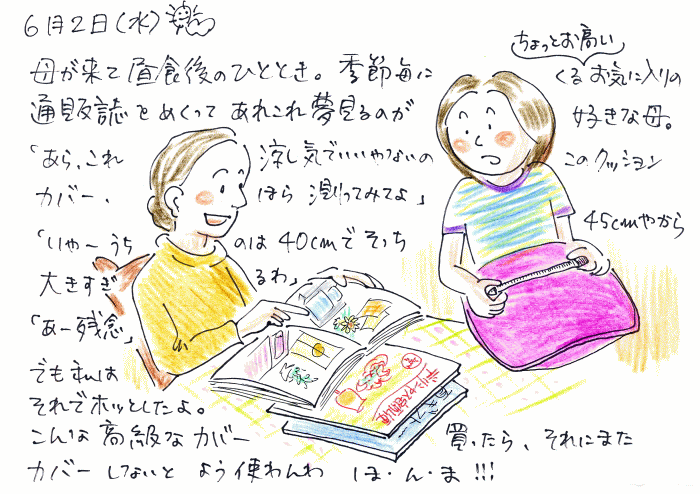 6月2日(水)
母が来て昼食後のひととき。季節毎に
ちょっとお高い
くるお気に入りの
通販誌をめくってあれこれ夢見るのが
好きな母。
「あら、これ 涼し気でいいやないの
このクッション
カバー、 ほら 測ってみてよ」
45cmやから
「いゃ〜うち のは40cmでそっち
大きすぎ るわ」
「あー残念」
でも私は
それでホッとしたよ。
こんな高級なカバー 買ったら、それにまた
カバーしないと よう使わんわ ほ・ん・ま!!!